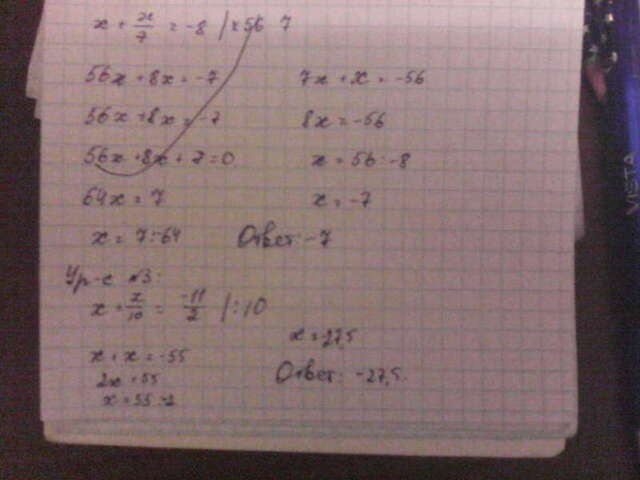 x + x/7 = -8 |×56 7
56x + 8x = -7
56x + 8x = -7
56x + 8x + 7 = 0
64x = 7
x = 7:-64
7x + x = -56
8x = -56
x = 56:-8
x = -7
Ответ: -7
Ур-е №3:
x + x/10 = -11/2 |:10
x + x = -55
2x = 55
x = 55:2
x = 27,5
Ответ: -27,5.